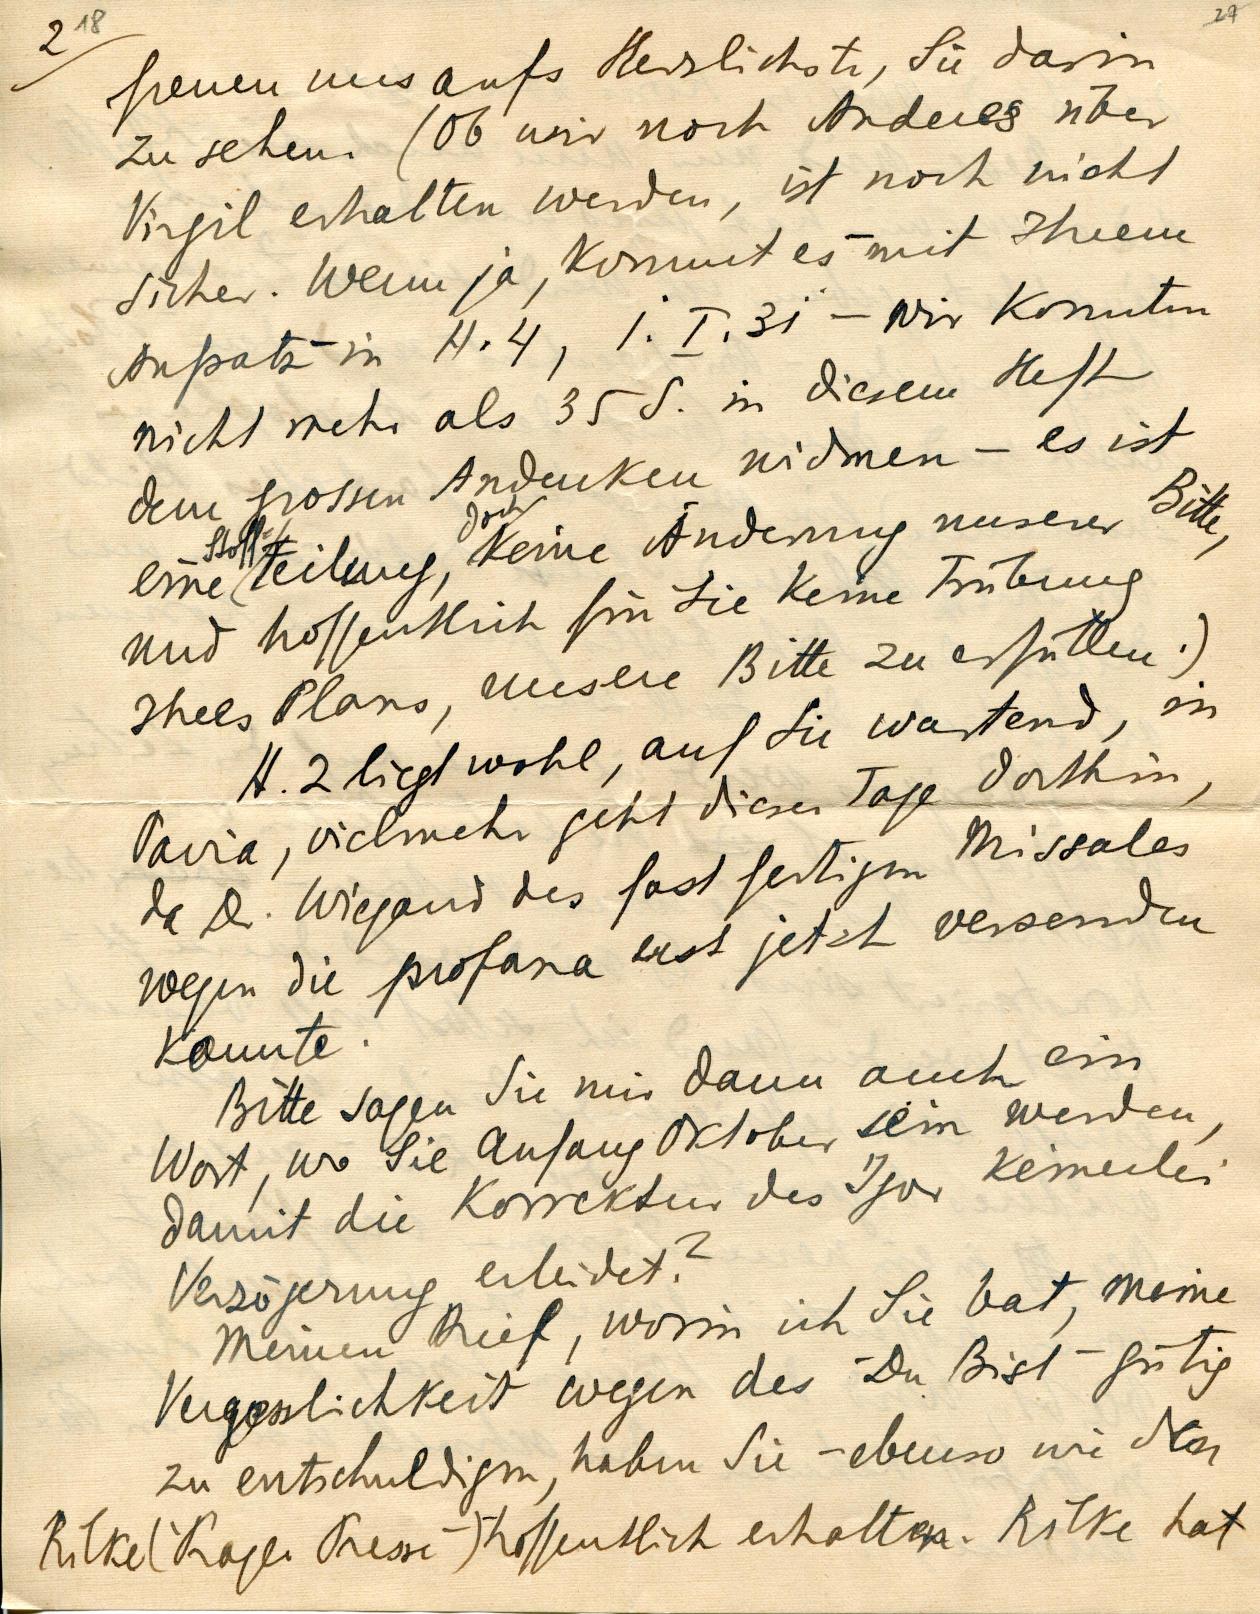 2 18
27
freuen uns aufs Herzlichste, Sie darin
zu sehen. (Ob wir noch Anderes über
Virgil erhalten werden, ist noch nicht
sicher. Wenn ja, kommt es mit Ihrem
Aufsatz in H. 4, 1. I. 31 – Wir konnten
nicht mehr als 35 S. in diesem Heft
dem grossen Andenken widmen – es ist
eine Stoff-Teilung, doch keine Änderung unserer Bitte,
und hoffentlich für Sie keine Trübung
Ihres Plans, unsere Bitte zu erfüllen.)
H. 2 liegt wohl, auf Sie wartend, in
Pavia, vielmehr geht dieser Tage dorthin,
da Dr. Wiegand des fast fertigen Missales
wegen die profana erst jetzt versenden
konnte.
Bitte sagen Sie mir dann auch ein
Wort, wo Sie Anfang Oktober sein werden,
damit die Korrektur des Igor keinerlei
Verzögerung erleidet?
Meinen Brief, worin ich Sie bat, meine
Vergesslichkeit wegen des -Du Bist- gütig
zu entschuldigen, haben Sie – ebenso wie den
Rilke (Prager Presse) hoffentlich erhalten. Rilke hat